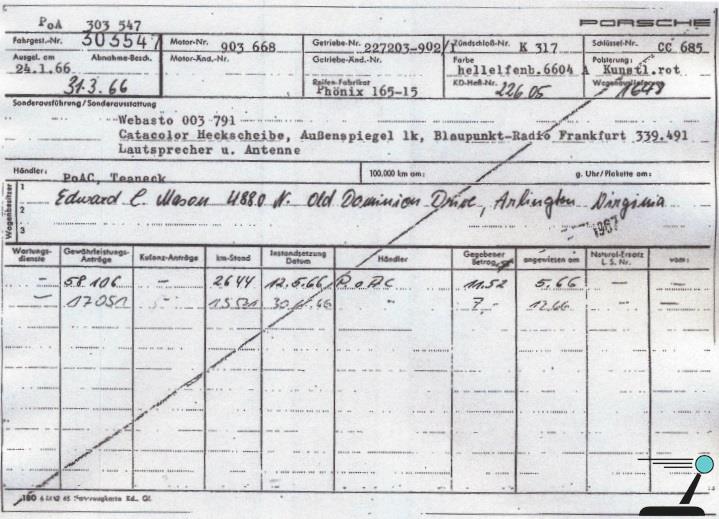 PoA 303 547 PORSCHE
Fahrgest.-Nr. 303547 Motor-Nr. 903 668 Getriebe-Nr. 227203-902/1 Zündschloß-Nr. K 317 Schlüssel-Nr. CC 685
Ausgel. am 24.1.66 Abnahme-Besch. 31.3.66 Motor-Änd.-Nr. Getriebe-Änd.-Nr. Farbe hellelfenb.6604 A Polsterung: Kunstl.rot
Reifen-Fabrikat Phönix 165-15 KD-Heft-Nr. 22605 Wagenauslieferung
Sonderausführung / Sonderausstattung
Webasto 003 791
Catacolor Heckscheibe, Außenspiegel lk, Blaupunkt-Radio Frankfurt 339.491
Lautsprecher u. Antenne
Händler: PoAC, Teaneck 100.000 km am: g. Uhr/Plakette am:
Wagenbesitzer
1 Edward C. Mason 4880 N. Old Dominion Drive, Arlington Virginia
2
3 1967
Wartungsdienste Gewährleistungs-Anträge Kulanz-Anträge km-Stand Instandsetzung Datum Händler Gegebener Betrag angewiesen am Natural-Ersatz L. S. Nr. vom:
– 58106 – 2644 12.5.66 PoAC 11.52 5.66 – –
– 17051 – 66 " 7.- 12.66 – –